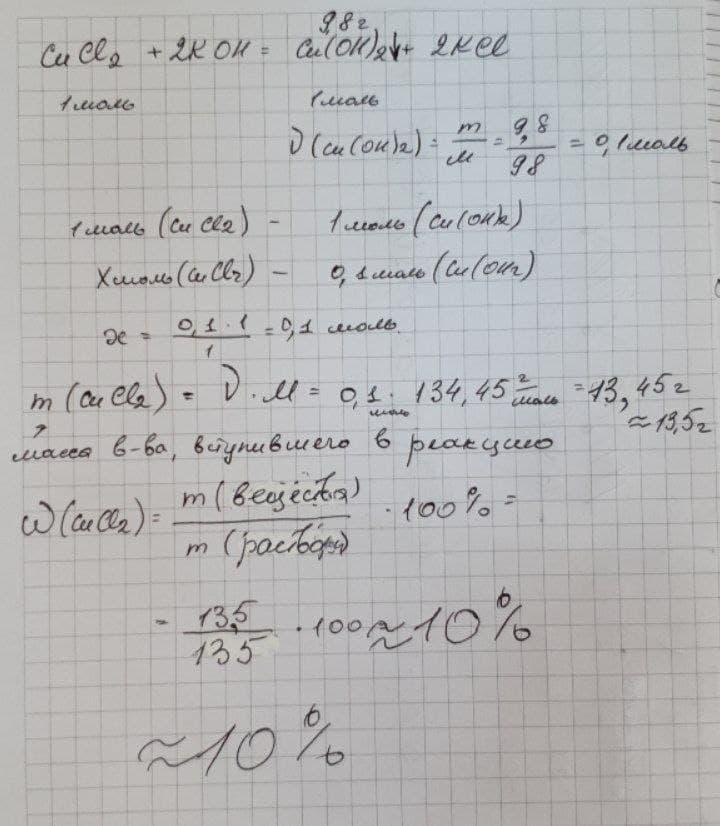 9,8г
CuCl2 + 2KOH = Cu(OH)2↓ + 2KCl
1моль 1моль
ν(Cu(OH)2) = m/M = 9,8/98 = 0,1моль
1моль(CuCl2) - 1моль(Cu(OH)2)
Xмоль(CuCl2) - 0,1моль(Cu(OH2)
x = 0,1·1/1 = 0,1 моль.
m(CuCl2) = ν·M = 0,1 моль · 134,45 г/моль = 13,45г
≈13,5г
масса в-ва, вступившего в реакцию
ω(CuCl2) = m(вещества)/m(раствора) · 100% =
= 13,5/135 · 100 ≈ 10%
≈10%